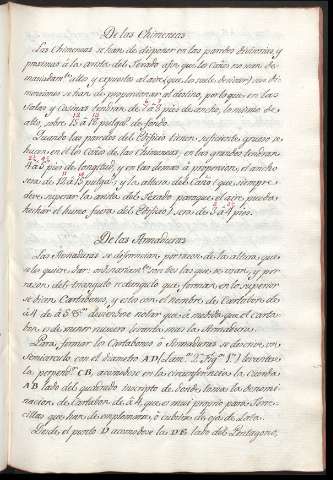 De las Chimeneas
Las Chimeneas se han de disponer en las paredes exteriores y
proximas à la arista del Texado afin que los Caños no sean de-
masiadam.te altos y expuestos al aire (que los suele derrivar) sus di-
mensiones se han de proporcionar al destino, por lo que, en las
Salas y Cocinas tendran de 5 à 8 pies de ancho, lo mismo de
alto, sobre 15 à 18 pulgad.s de fondo.
Quando las paredes del Edificio tienen suficiente grueso se
hacen en el los Caños de las Chimeneas; en las grandes tendran
4 à 5 pies de longitud, y en las demas à proporcion, el ancho
sera de 12 à 15 pulgad.s y la altura del Caño (que siempre
deve superar la arista del Texado para que el aire pueda
hechar el humo fuera del Edificio) sera de 3 à 4 pies.
De las Armaduras
Las Armaduras se diferencian por razon de la altura, que
se les quiere dar: ordinariam.te son tres las que se usan, y por
razon del triangulo rectangulo que forman en lo superior
se dicen Cartabones, y esto con el nombre de Cartabon de
à 4 de à 5 &.ª deviendose notar que à medida que el carta-
bon es de menor numero levanta mas la Armadura.
Para formar los Cartabones ò Armaduras se descrive un
Semicirculo con el diametro AD (Lam.ª 2.ª Fig.ª 1.ª) levantese
la perpend.r CB, acomodese en la circunferencia la cuerda
AB lado del quadrado inscripto de donde toma la denomi-
nacion de Cartabon de à 4, que es mui proprio para Torre-
cillas que han de emplomarse ò cubrirse de oja de Lata.
Desde el punto D acomodese la DE lado del Pentagono,